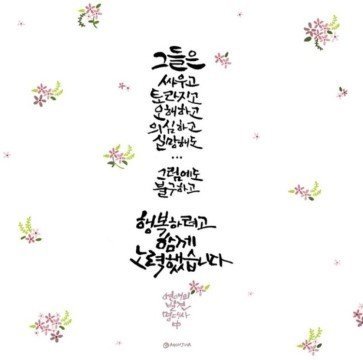 그들은
싸우고
토라지고
오해하고
의심하고
실망해도
...
그럼에도
불구하고
행복하려고
함께
노력했습니다